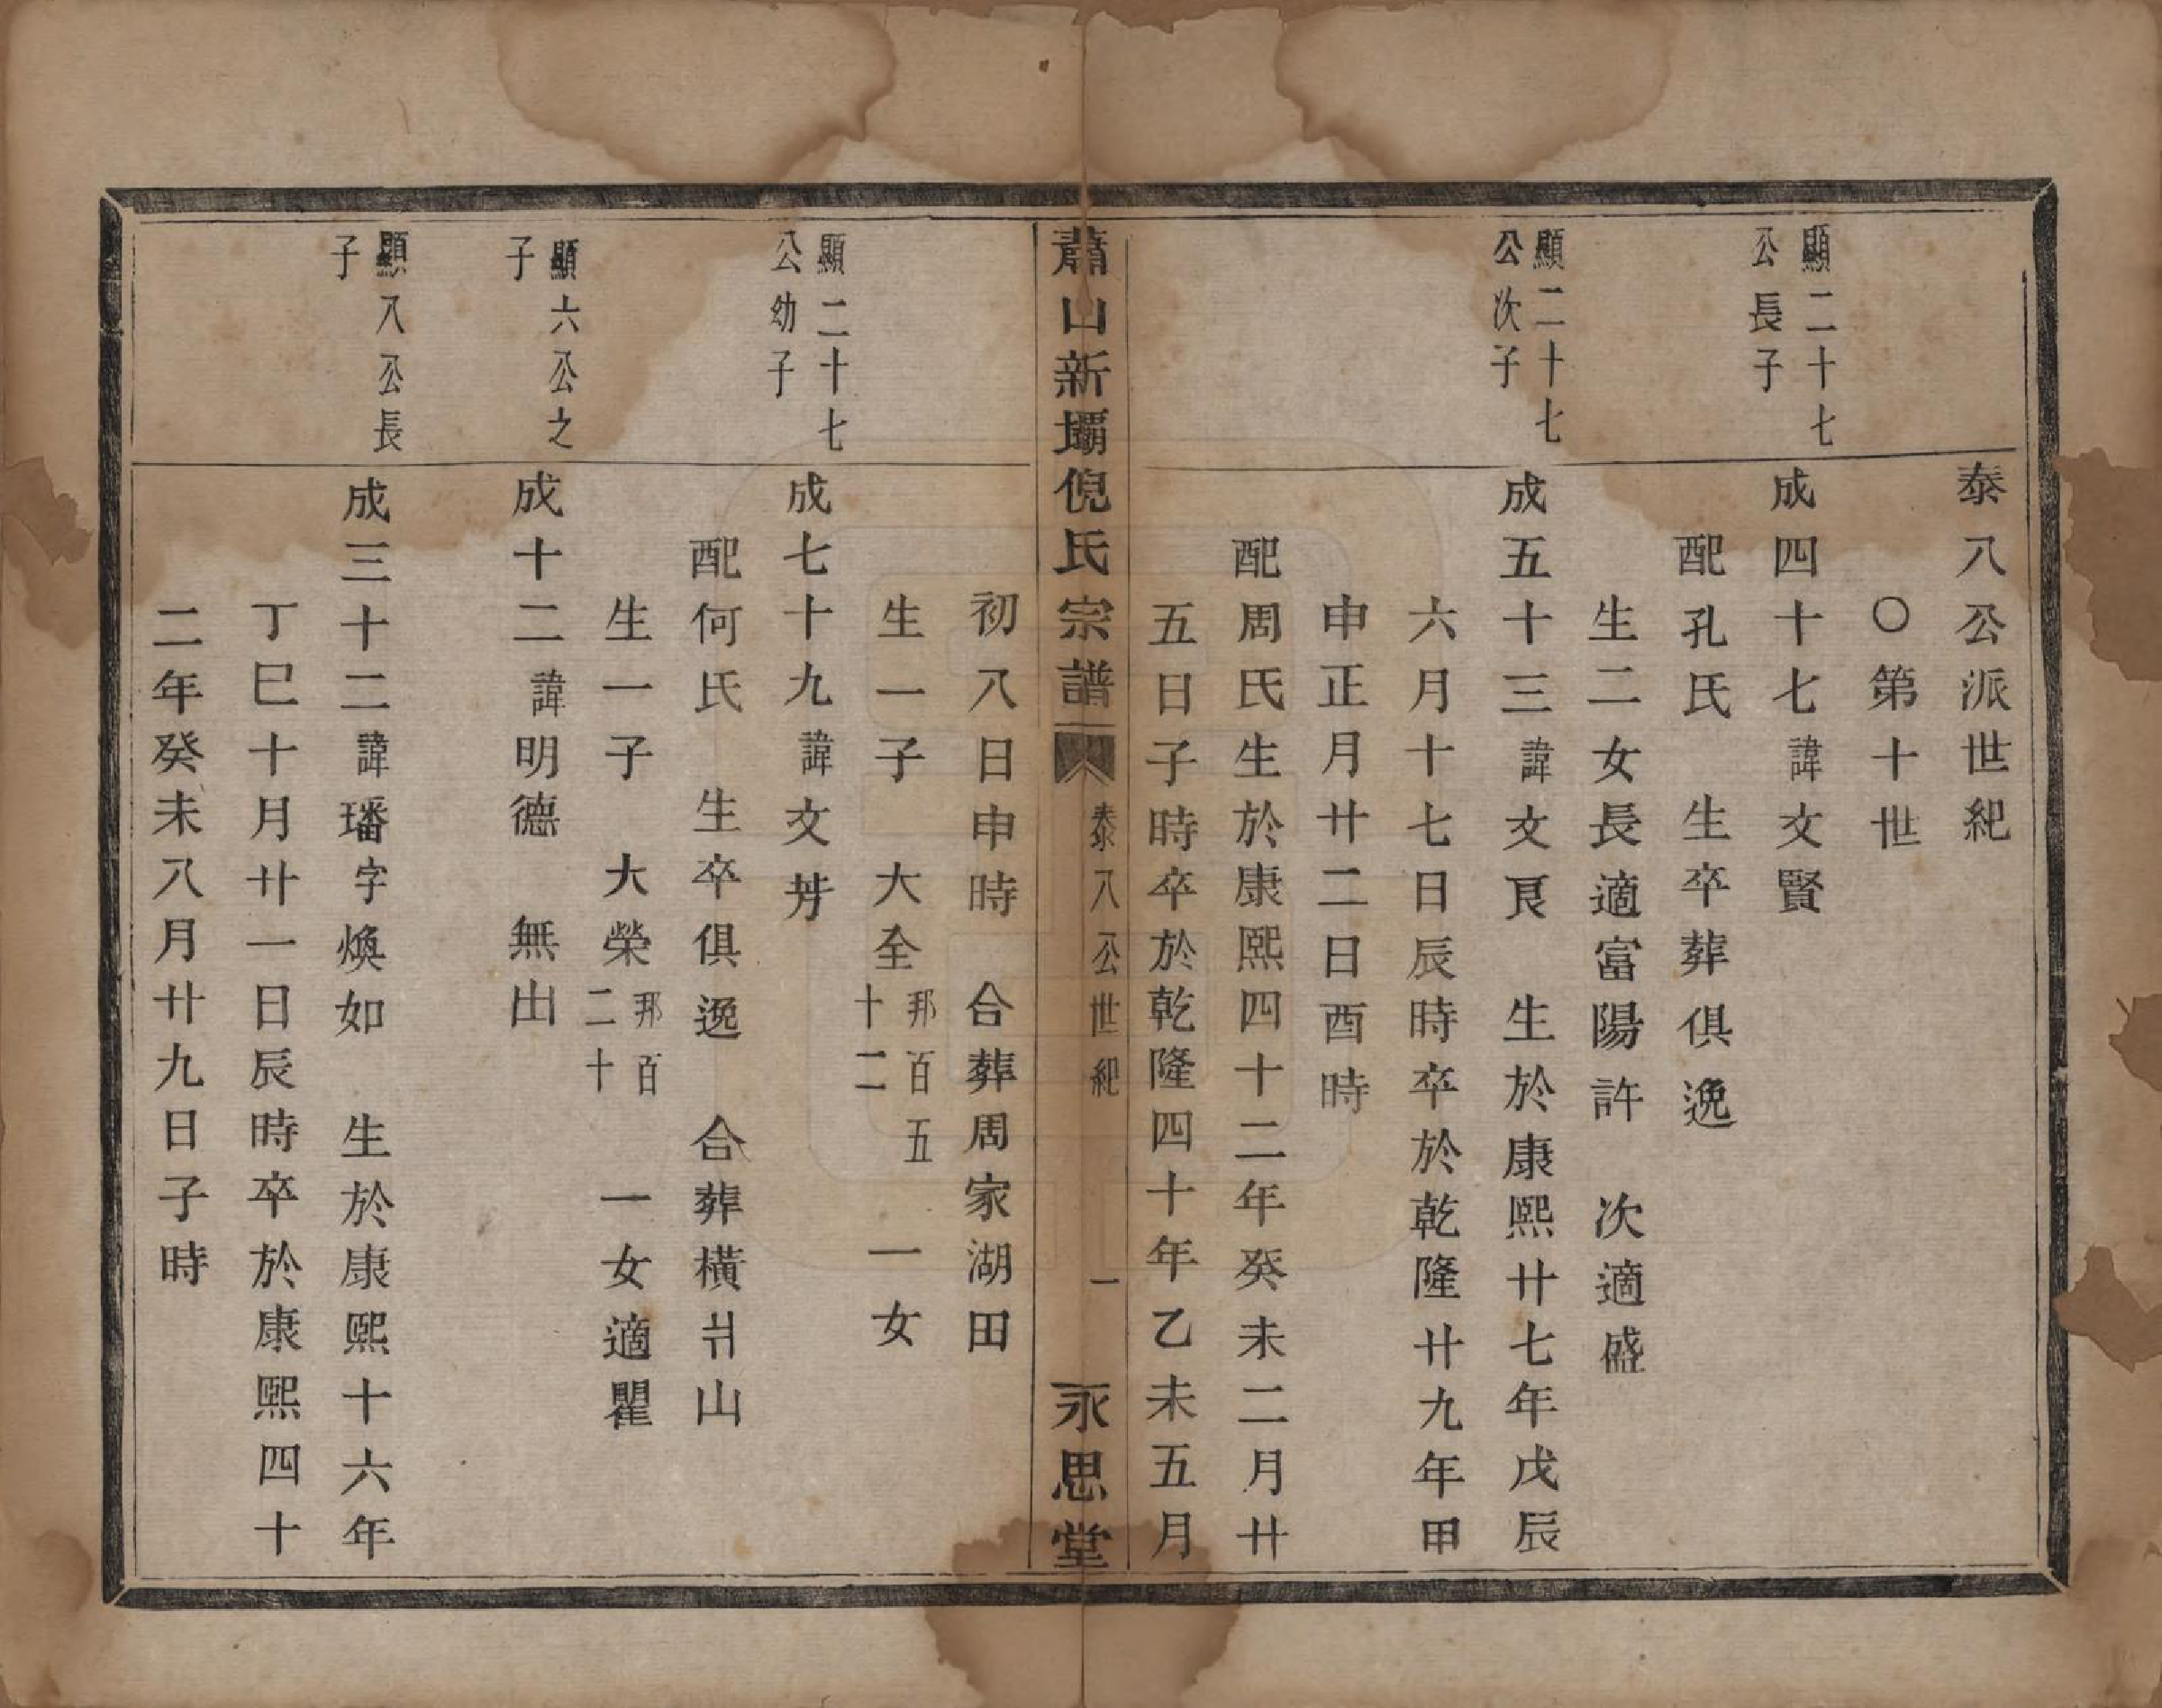 泰八公派世紀
〇第十世
顯二十七
公長子
成四十七諱文賢
配孔氏 生卒葬俱逸
生二女長適富陽許 次適盛
顯二十七
公次子
成五十三諱文良 生於康熙廿七年戊辰
六月十七日辰時卒於乾隆廿九年甲
申正月廿二日酉時
配周氏生於康熙四十二年癸未二月廿
五日子時卒於乾隆四十年乙未五月
蕭山新壩倪氏宗譜 泰八公世紀 一 永思堂
初八日申時 合葬周家湖田
生一子 大全邦百五十二 一女
顯二十七
公幼子
成七十九諱文芳
配何氏 生卒俱逸 合葬橫爿山
生一子 大榮邦百二十 一女適瞿
顯六公之
子
成十二諱明德 無出
顯八公長
子
成三十二諱璠字煥如 生於康熙十六年
丁巳十月廿一日辰時卒於康熙四十
二年癸未八月廿九日子時